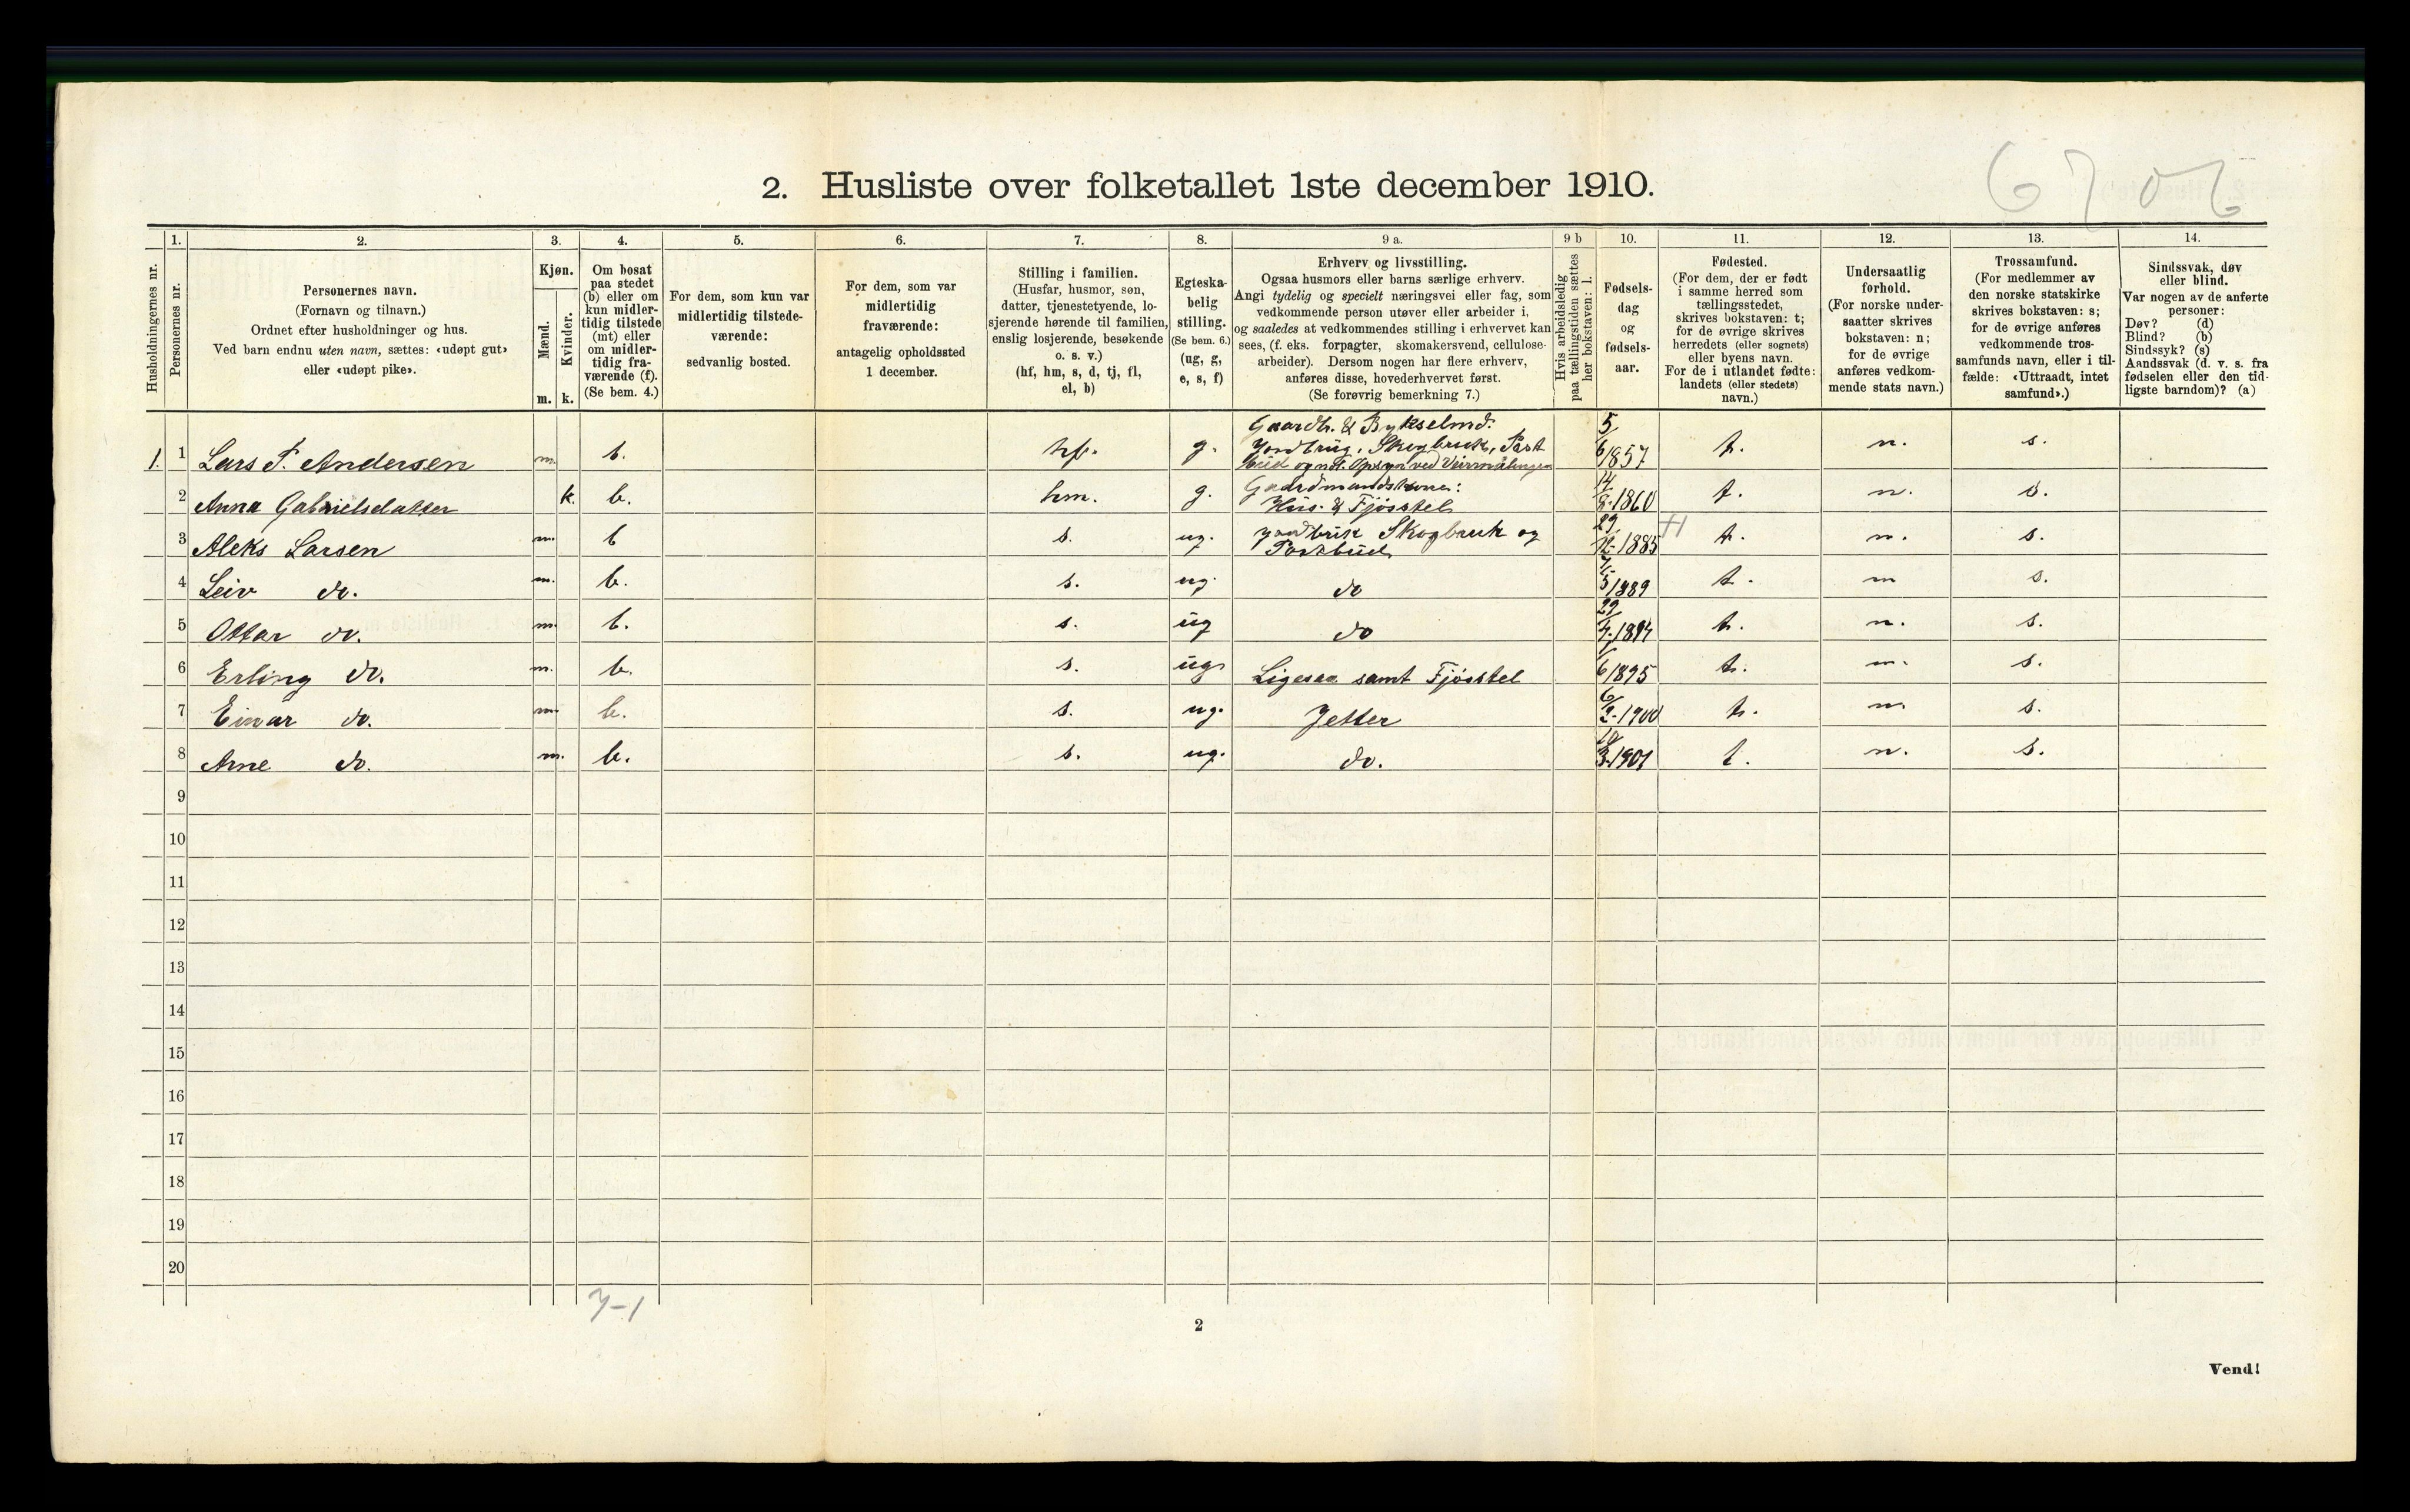 6702
2. Husliste over folketallet 1ste december 1910.
Husholdningernes nr.
1.
Personernes nr.
2.
Personernes navn.
(Fornavn og tilnavn.)
Ordnet efter husholdninger og hus.
Ved barn endnu uten navn, sættes: «udøpt gut»
eller «udøpt pike».
3.
Kjøn.
Mænd.
Kvinder.
m. k.
4.
Om bosat
paa stedet
(b) eller om
kun midler-
tidig tilstede
(mt) eller
om midler-
tidig fra-
værende (f).
(Se bem. 4.)
5.
For dem, som kun var
midlertidig tilstede-
værende:
sedvanlig bosted.
6.
For dem, som var
midlertidig
fraværende:
antagelig opholdssted
1 december.
7.
Stilling i familien.
(Husfar, husmor, søn,
datter, tjenestetyende, lo-
sjerende hørende til familien,
enslig losjerende, besøkende
o. s. v.)
(hf, hm, s, d, tj, fl,
el, b)
8.
Egteska-
belig
stilling.
(Se bem. 6.)
(ug, g,
e, s, f)
9 a.
Erhverv og livsstilling.
Ogsaa husmors eller barns særlige erhverv.
Angi tydelig og specielt næringsvei eller fag, som
vedkommende person utøver eller arbeider i,
og saaledes at vedkommendes stilling i erhvervet kan
sees, (f. eks. forpagter, skomakersvend, cellulose-
arbeider). Dersom nogen har flere erhverv,
anføres disse, hovederhvervet først.
(Se forøvrig bemerkning 7.)
9 b
Hvis arbeidsledig
paa tællingstiden sættes
her bokstaven: l.
10.
Fødsels-
dag
og
fødsels-
aar.
11.
Fødested.
(For dem, der er født
i samme herred som
tællingsstedet,
skrives bokstaven: t;
for de øvrige skrives
herredets (eller sognets)
eller byens navn.
For de i utlandet fødte:
landets (eller stedets)
navn.)
12.
Undersaatlig
forhold.
(For norske under-
saatter skrives
bokstaven: n;
for de øvrige
anføres vedkom-
mende stats navn.)
13.
Trossamfund.
(For medlemmer av
den norske statskirke
skrives bokstaven: s;
for de øvrige anføres
vedkommende tros-
samfunds navn, eller i til-
fælde: «Uttraadt, intet
samfund».)
14.
Sindssvak, døv
eller blind.
Var nogen av de anførte
personer:
Døv? (d)
Blind? (b)
Sindssyk? (s)
Aandssvak (d. v. s. fra
fødselen eller den tid-
ligste barndom)? (a)
1. 1 Lars P. Andersen m. b. hf. g. Gaardb. & Bykselmd. Jordbrug, Skogbruk, Post bud og Opsyn ved 5/6 1857 t. n. s.
2 Anna Gabrielsdatter k. b. hm. g. Gaardmandskone: Hus & Fjøsstel 14/2-1860 t. n. s.
3 Aleks Larsen m. b s. ug. Jordbruk Skogbruk og Postbud 29/12-1885 t. n. s.
4 Leiv do. m. b. s. ug. do 7/5 1889 t. n s.
5 Ottar do. m. b. s. ug do t. n. s.
6 Erling do. m. b. s. ug. Ligesaa samt Fjøsstel 1/6 1895 t. n. s.
7 Einar do. m. b. s. ug. Jetter 6/2-1900 t. n. s.
8 Arne do. m. b. s. ug. do. 1901 t. n. s.
9
10
11
12
13
14
15
16
17
18
19
20
7-1
2
Vend!